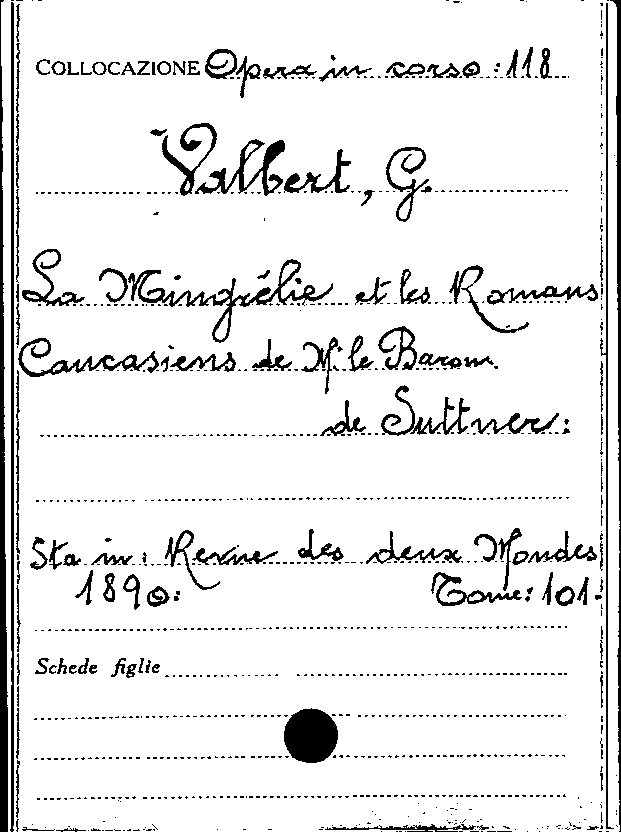 COLLOCAZIONE Opera in corso : 118
Valbert, G.
La Mingrélie et les Romans
Caucasiens de M. le Baron
de Suttner:
Sta in: Revue des deux Mondes
1890: Tome: 101.
Schede figlie